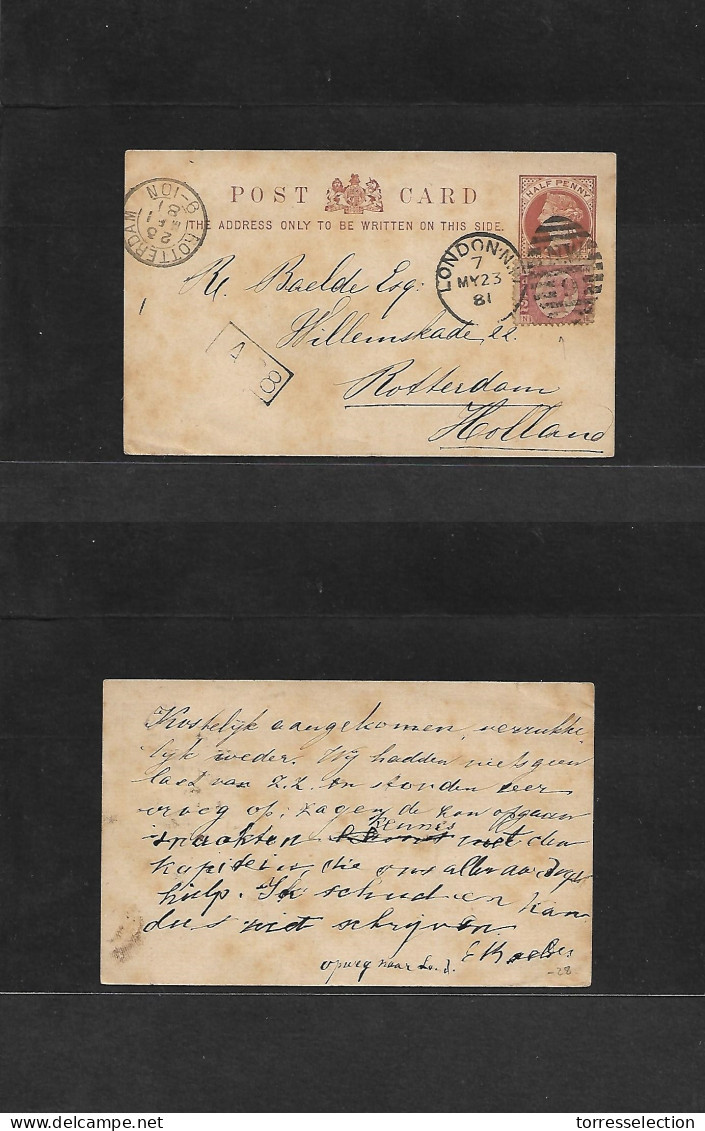 POST CARD
THE ADDRESS ONLY TO BE WRITTEN ON THIS SIDE.
HALF PENNY
ROTTERDAM
LONDON·N.W
7
MY 23
81
R. Baelde Esq:
Willemskade 22
Rotterdam
Holland
A 8
Kostelijk aangekomen, verrukke-
lijk weder. Wij hadden niets geen
last van Z.Z. en stonden zeer
vroeg op, zagen de zon opgaan
kennis
maakten met den
kapitein, die ons allen
hielp. Ik schud en kan
dus niet schrijven.
op weg naar
-28
torresselection